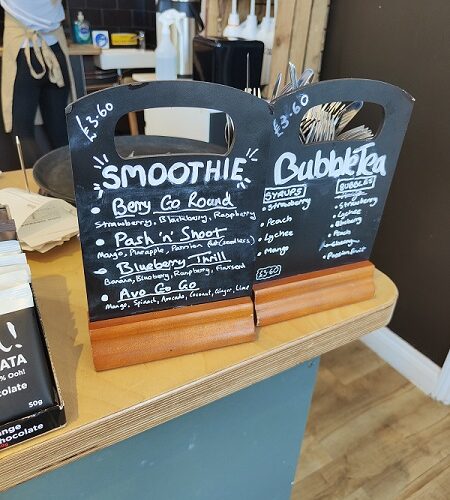 £3.60
SMOOTHIE
Berry Go Round
Strawberry, Blackberry, Raspberry
Pash 'n' Shoot
Mango, Pineapple, Passion Fruit
Blueberry Thrill
Banana, Blueberry, Raspberry, Flaxseed
Avo Go Go
Mango, Spinach, Avocado, Coconut, Ginger, Lime
£3.60
Bubble Tea
SYRUPS
Strawberry
Peach
Lychee
Mango
£3.60
BUBBLES
Strawberry
Lychee
Blueberry
Peach
Passionfruit
ATA
Ooh!
50g
colate